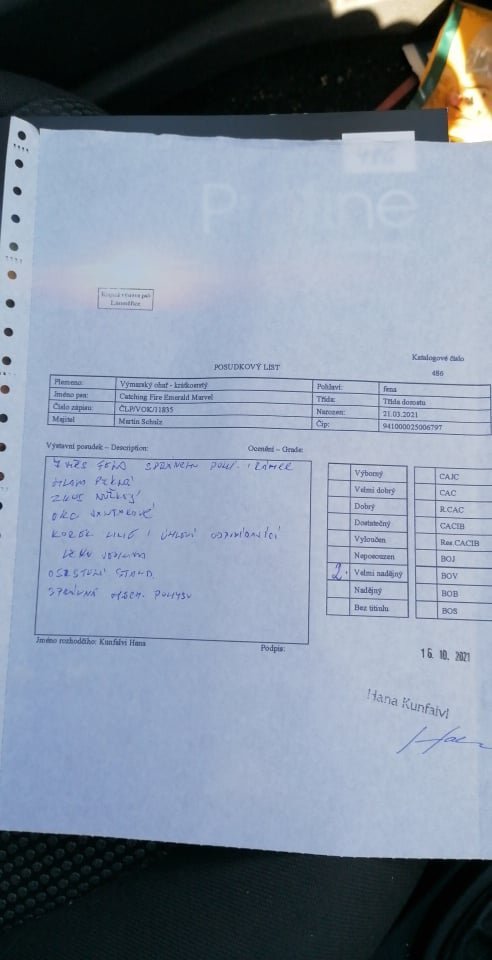 486
Proline
Krajská výstava psů
Litoměřice
POSUDKOVÝ LIST
Katalogové číslo
486
Plemeno: Výmarský ohař - krátkosrstý Pohlaví: fena
Jméno psa: Catching Fire Emerald Marvel Třída: Třída dorostu
Číslo zápisu: ČLP/VOK/11835 Narozen: 21.03.2021
Majitel Martin Schulz Čip: 941000025006797
Výstavní posudek – Description: Ocenění – Grade:
FENA SPRÁVNÉHO POHL. I RÁMCE
HLAVA PĚKNÁ
ZKUS NŮŽKOVÝ
OKO
KOREK. LINIE I ÚHLENÍ
OSRSTĚNÍ STAND.
SPRÁVNÁ MECH. POHYBU
Výborný CAJC
Velmi dobrý CAC
Dobrý R.CAC
Dostatečný CACIB
Vyloučen Res.CACIB
Neposouzen BOJ
2. Velmi nadějný BOV
Nadějný BOB
Bez titulu BOS
Jméno rozhodčího: Kunfalvi Hana Podpis:
16. 10. 2021
Hana Kunfalvi